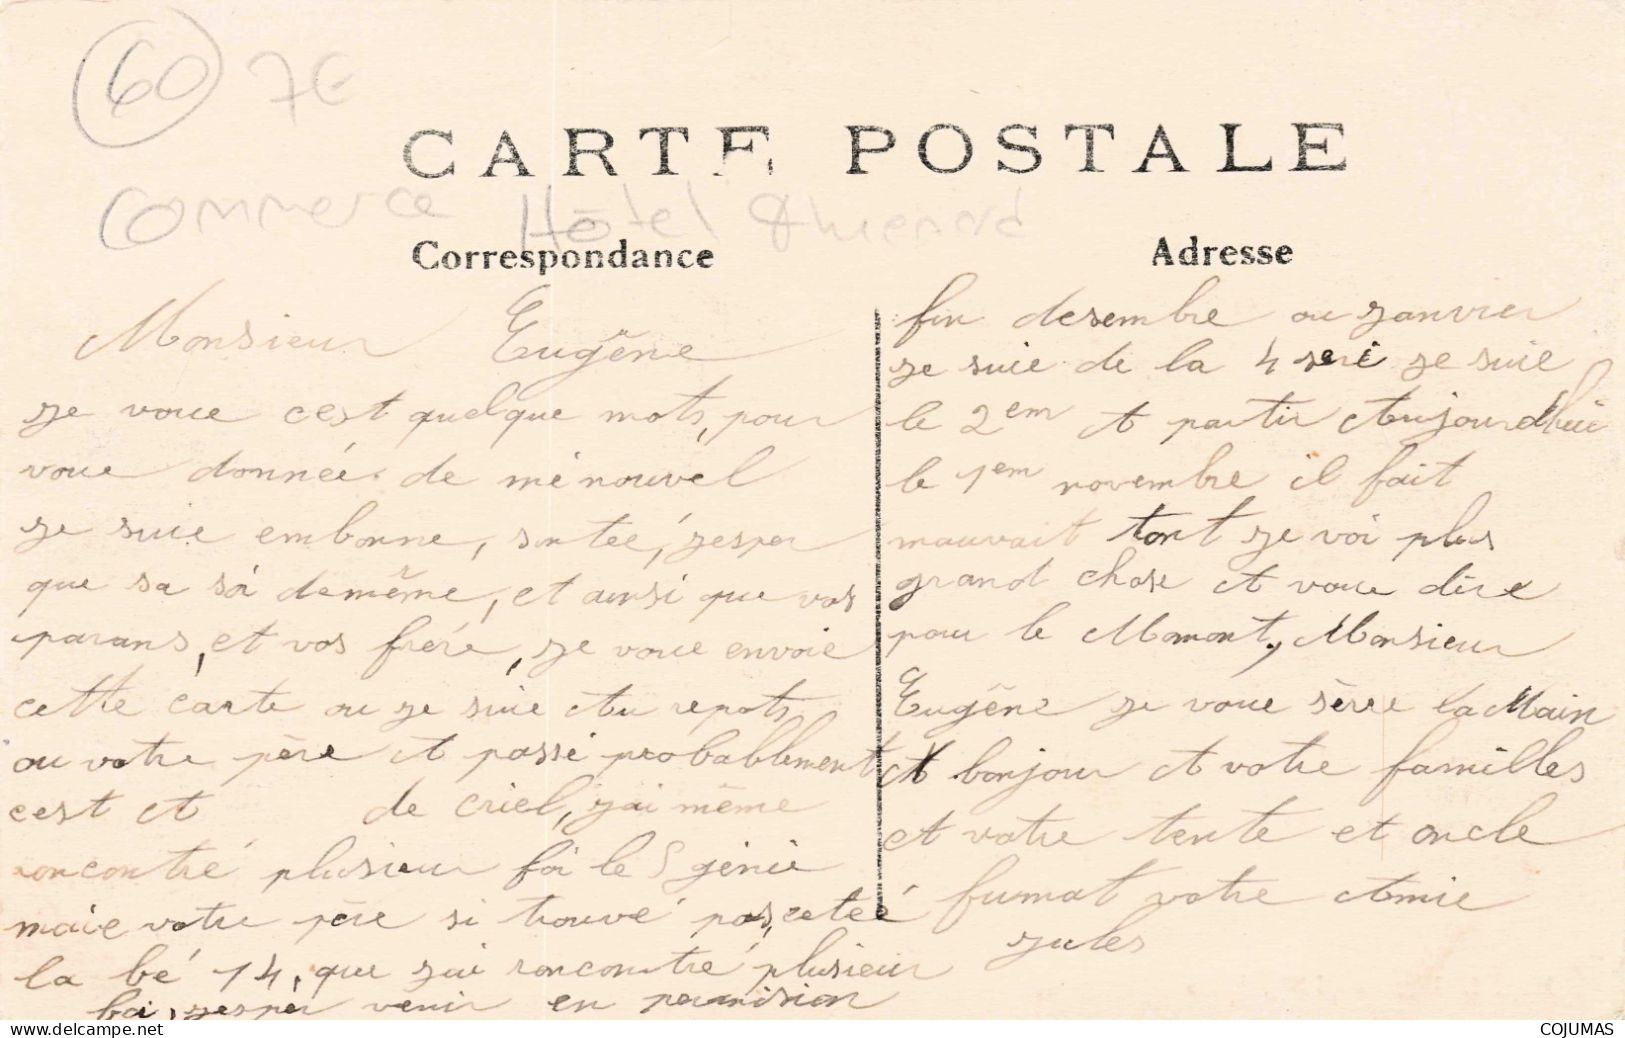 60 7€
CARTE POSTALE
Commerce Hôtel
Correspondance
Adresse
Monsieur Eugêne
je voue cest quelque mots, pour
voue donnée de mé nouvel
je suie embonne, sontée, jesper
que sa soi demême, et ainsi que vos
parans, et vos frére, je voue envoie
cette carte ou je suie Au repots
ou votre père A passé probablement
cest A de criel, jai même
roncontré plusieur foi le génie
maie votre père si trouvé pas, cetéé
la bé 14, que jai roncomtré plusieur
foi, jesper venir en permision
fin desembre ou janvier
je suie de la 4 seri je suie
le 2em A partir Aujourdhui
le 1em novembre il fait
mauvait tant je voi plus
grand chose A voue dire
pour le Momont, Monsieur
Eugêne je voue sèrre la Main
A bonjour A votre familles
A votre tente et oncle
fumat votre Amie
jules
delcampe.net
COJUMAS